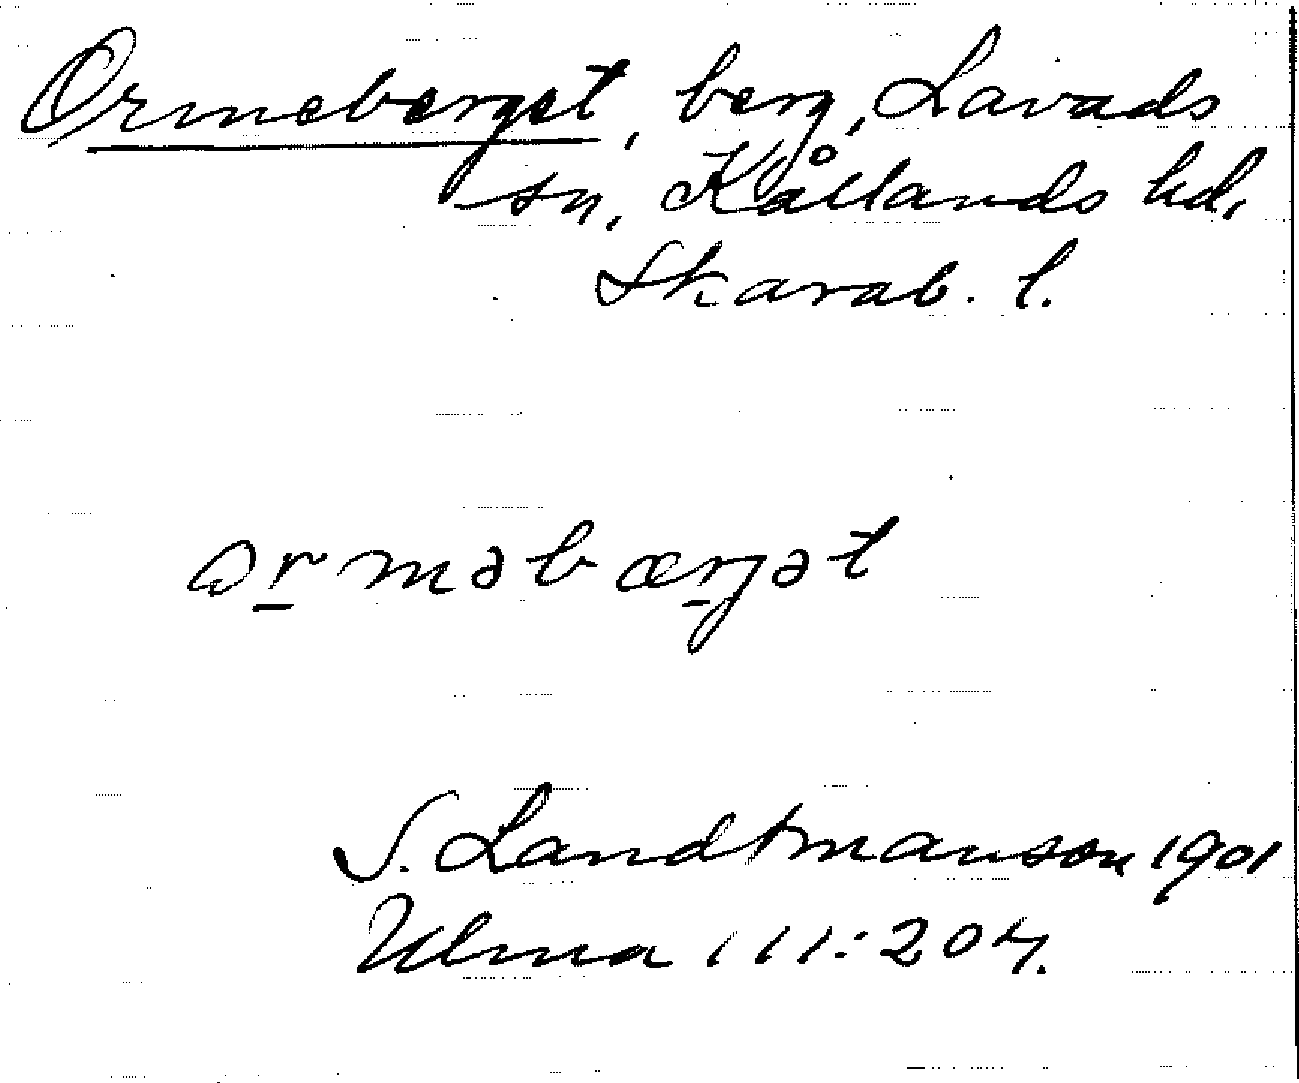 Ormeberget, berg, Lavads
sn, Kållands hd,
Skarab. l.
orməbærjət
S. Landtmanson 1901
Ulma 111:204.